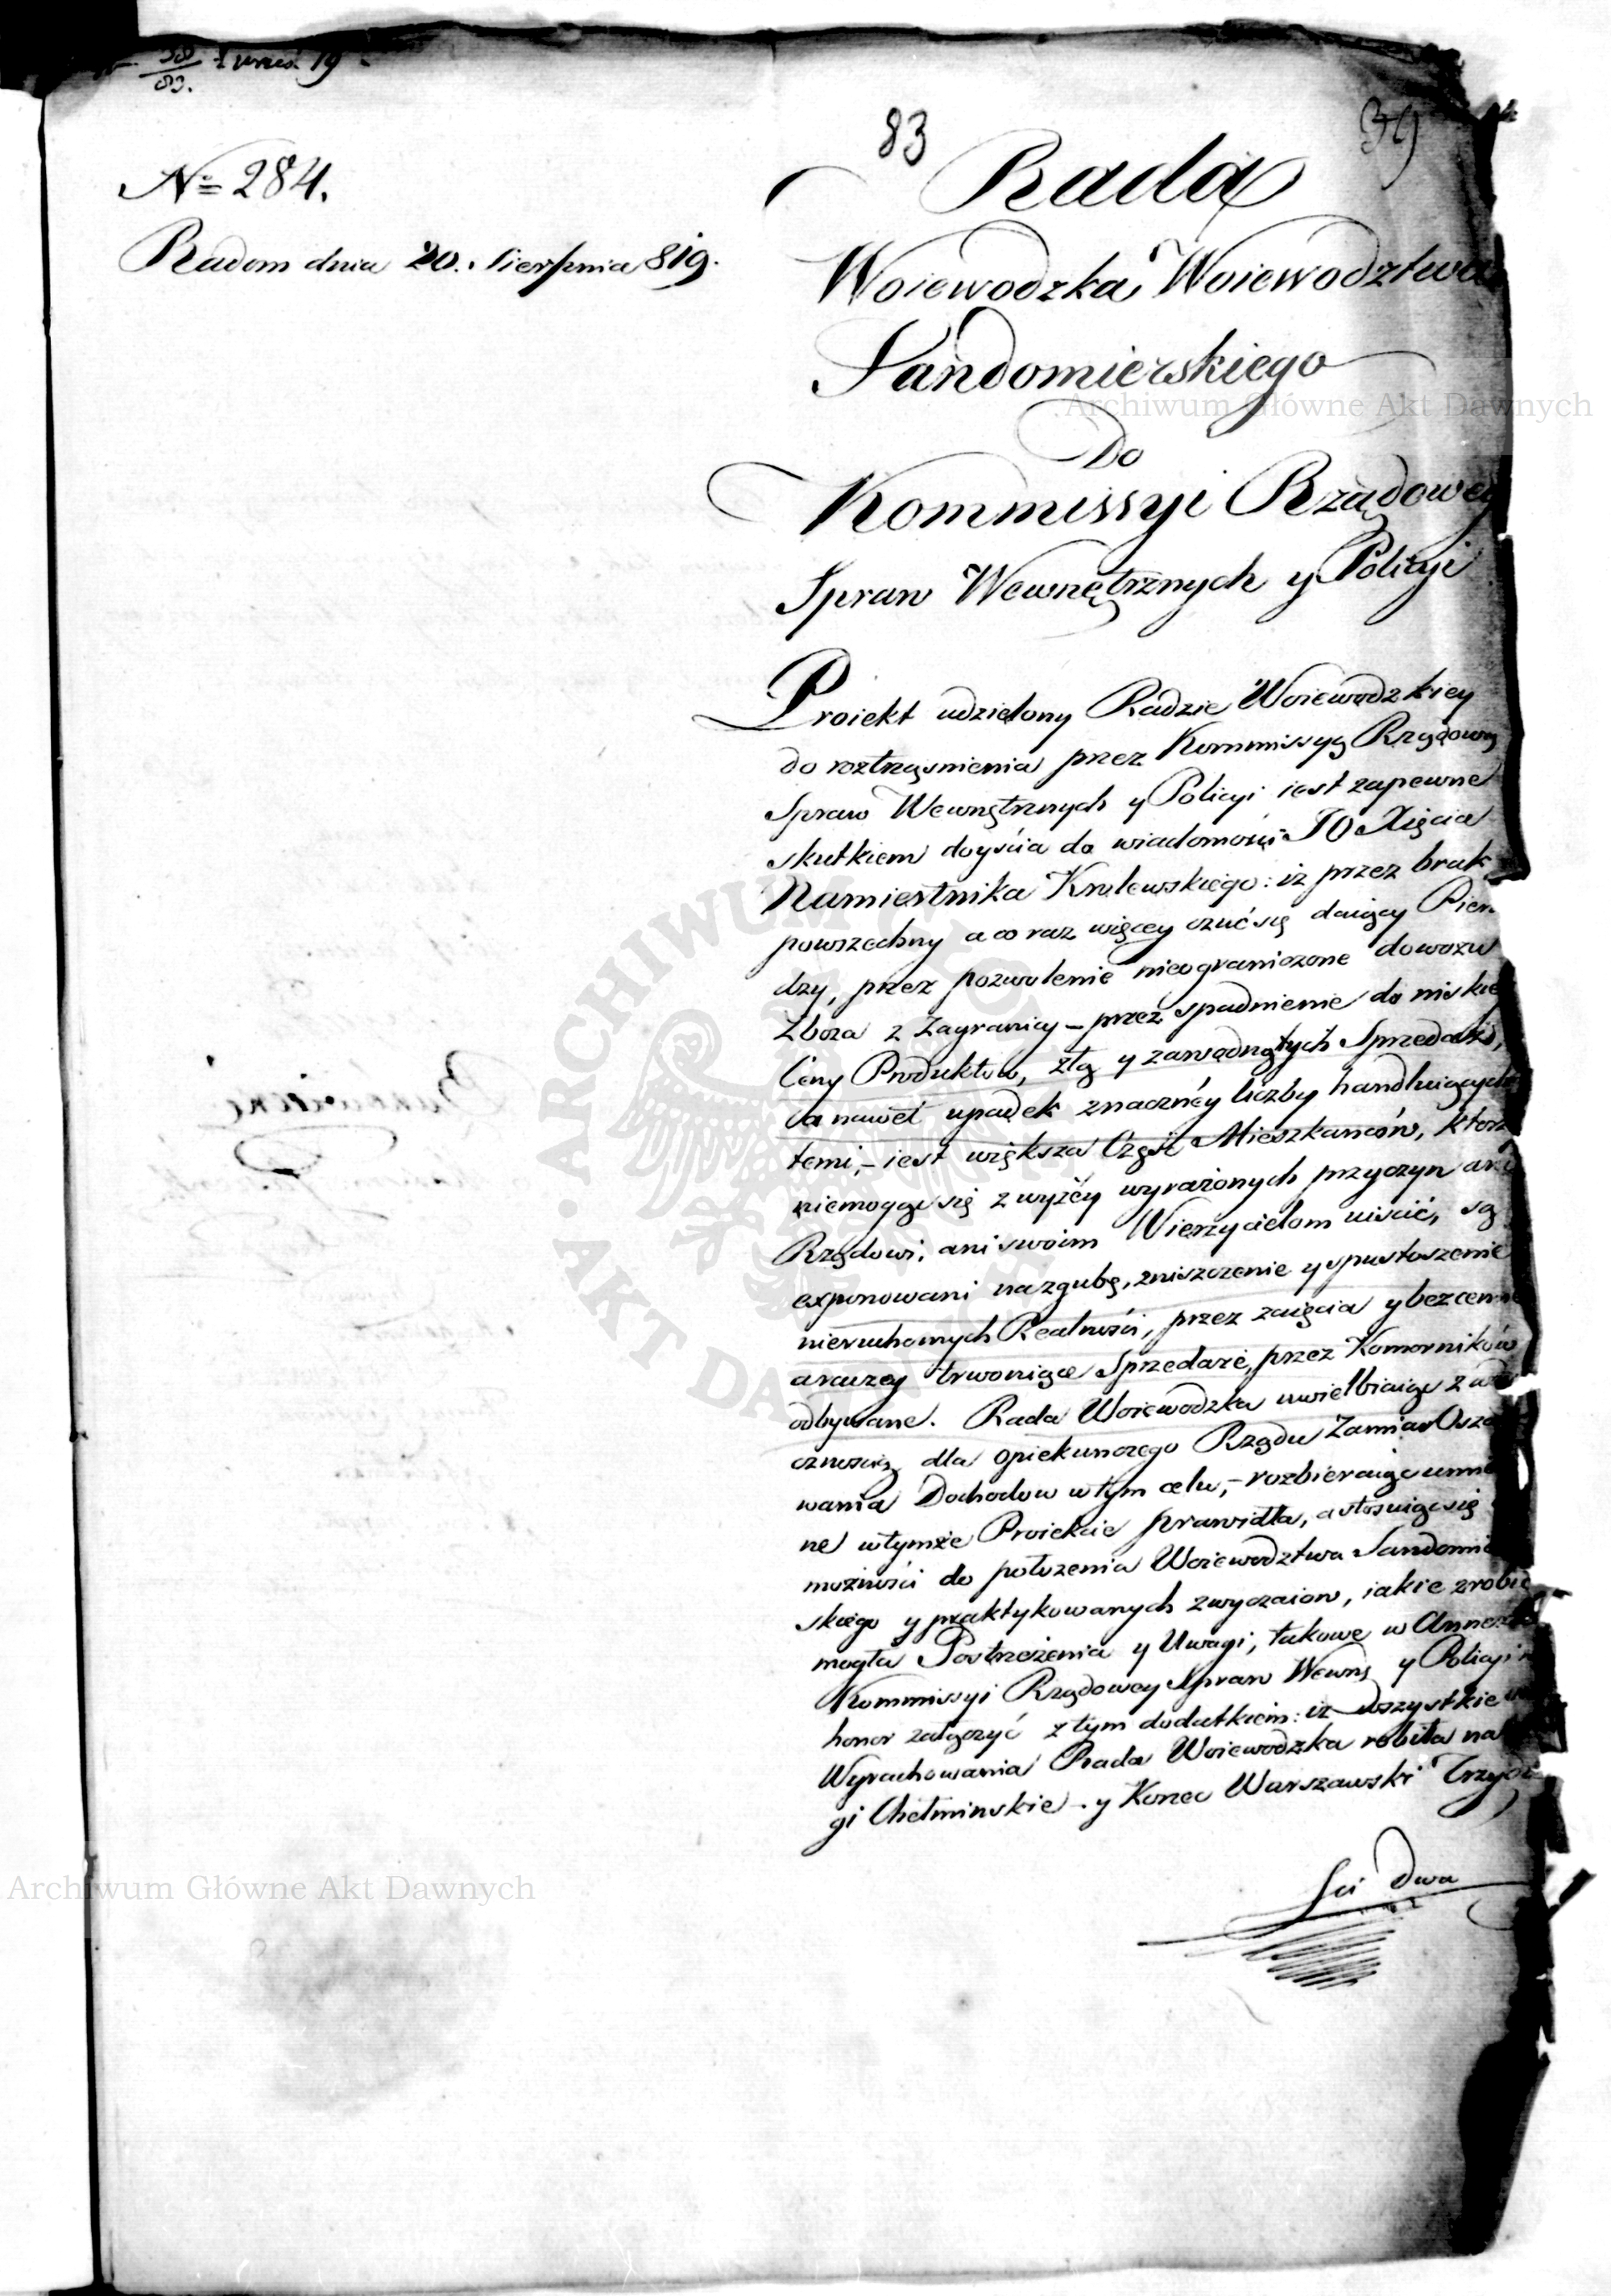 83.
83
39
№ 284.
Radom dnia 20. Sierpnia 819.
Rada
Woiewodzka Woiewodztwa
Sandomierskiego
Do
Kommissyi Rządowey
Spraw Wewnętrznych y Policyi
Proiekt udzielony Radzie Woiewodzkiey
do roztrząsnienia przez Kommissyą Rządową
Spraw Wewnętrznych y Policyi iest zapewne
skutkiem doyścia do wiadomości JO Xięcia
Namiestnika Krolewskiego: iż przez brak
powszechny a co raz więcey czuć się daiący Pien
dzy, przez pozwolenie nieograniczone dowozu
Zboza z Zagranicy – przez spadnienie do niskie
Ceny Produktow, złą y zawodną tych Sprzedaż,
a nawet upadek znaczney liczby handluiących
temi, – iest większa Część Mieszkańców, ktorz
niemogąc się z wyżey wyrażonych przyczyn ani
Rządowi, ani swoim Wierzycielom uiścić, są
exponowani na zgubę, zniszczenie y spustoszenie
nieruchomych Realności, przez zaięcia y bezcenne
a raczey trwoniące Sprzedaże, przez Komorników
odbywane. Rada Woiewodzka uwielbiaiąc z wdz
cznością dla opiekunczego Rządu Zamiar Osza
wania Dochodow w tym celu, – rozbieraiąc umie
ne w tymże Proiekcie prawidła, a stosuiąc się
możności do położenia Woiewodztwa Sandomie
skiego y praktykowanych zwyczaiow, iakie zrobić
mogła Postrzeżenia y Uwagi, takowe w Annexie
Kommissyi Rządowey Spraw Wewnę y Policyi
honor załączyć z tym dodatkiem: iż wszystkie
Wyrachowania Rada Woiewodzka robiła na
gi Chełminskie – y Korzec Warszawski Trzydzie
sci dwa
Archiwum Główne Akt Dawnych
Archiwum Główne Akt Dawnych